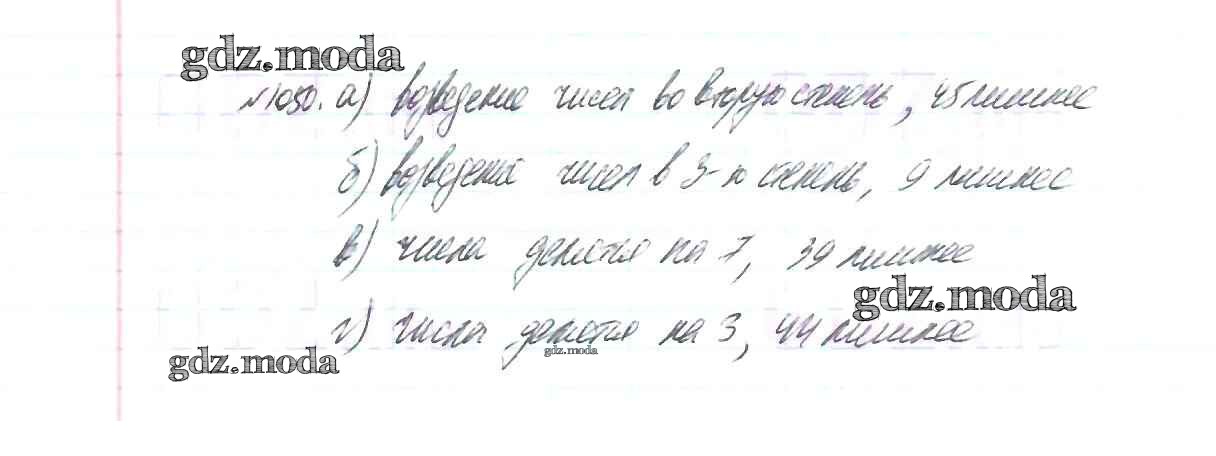 gdz.moda
№1050. а) возведение чисел во вторую степень, 45 лишнее
б) возведение чисел в 3-ю степень, 9 лишнее
в) числа делятся на 7, 39 лишнее
gdz.moda
г) числа делятся на 3, 44 лишнее
gdz.moda
gdz.moda